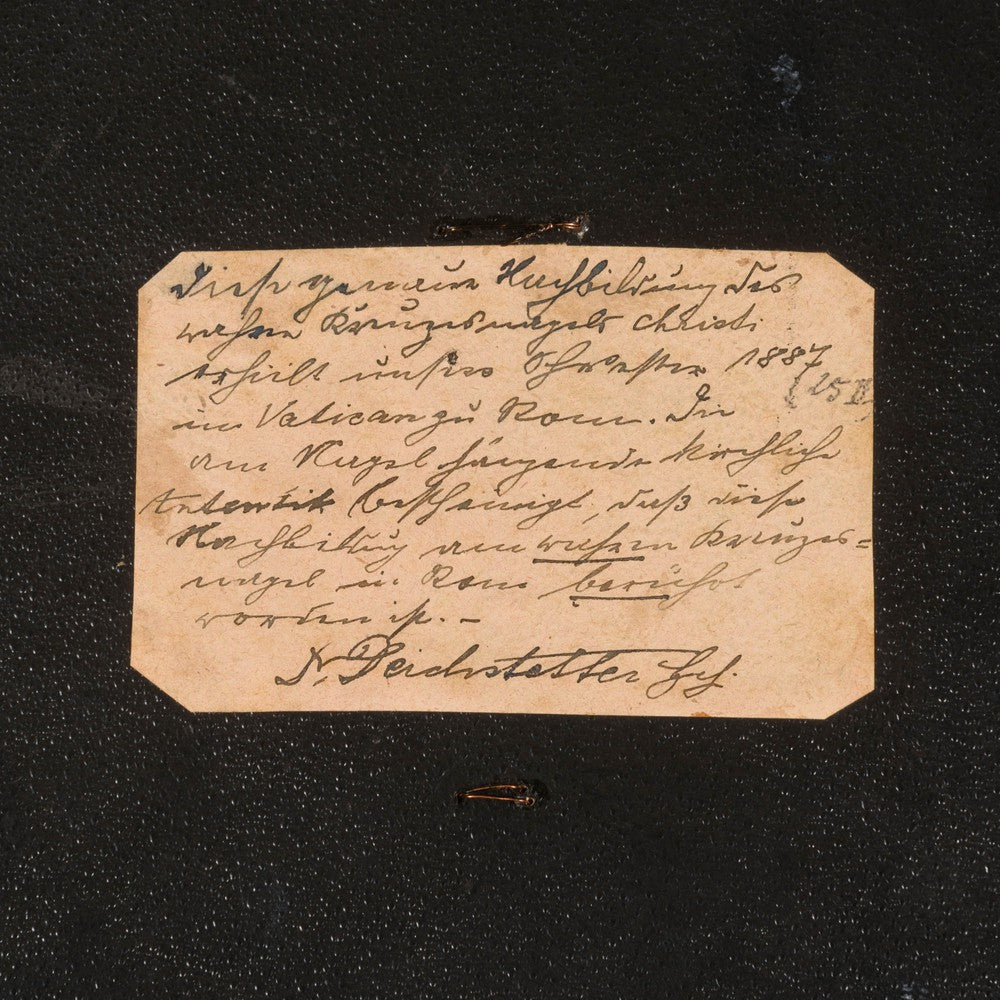 Diese genaue Nachbildung des
wahren Kreuzesnagels Christi
erhielt unsere Schwester 1887
(25 II
im Vatican zu Rom. Die
am Nagel hängende kirchliche
Autentik bescheinigt, daß diese
Nachbildung am wahren Kreuzes=
nagel in Rom berührt
worden ist. –
Dr. Deichstetter